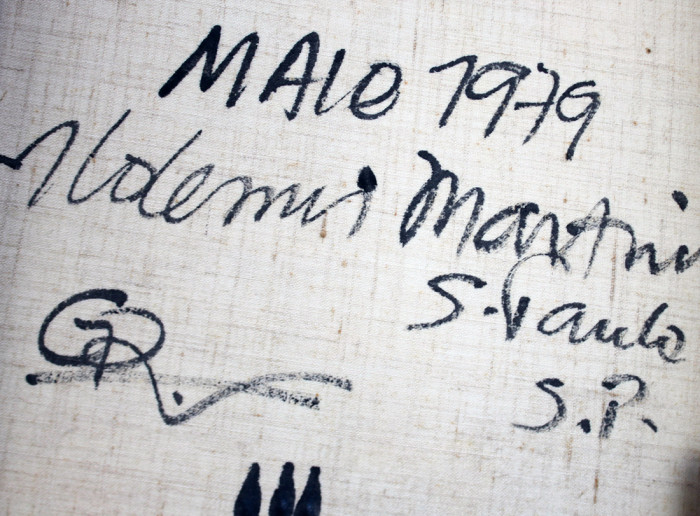 MAIO 1979
Aldemir Martins
S. Paulo
S.P.